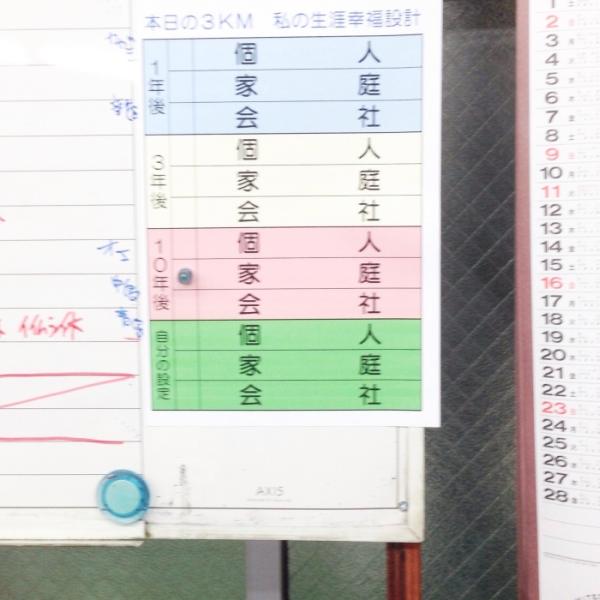 本日の3KM 私の生涯幸福設計
1年後
個人
家庭
会社
3年後
個人
家庭
会社
10年後
個人
家庭
会社
自分の設定
個人
家庭
会社
AXIS
1
2
3
4
5
6
7
8
9
10
11
12
13
14
15
16
17
18
19
20
21
22
23
24
25
26
27
28